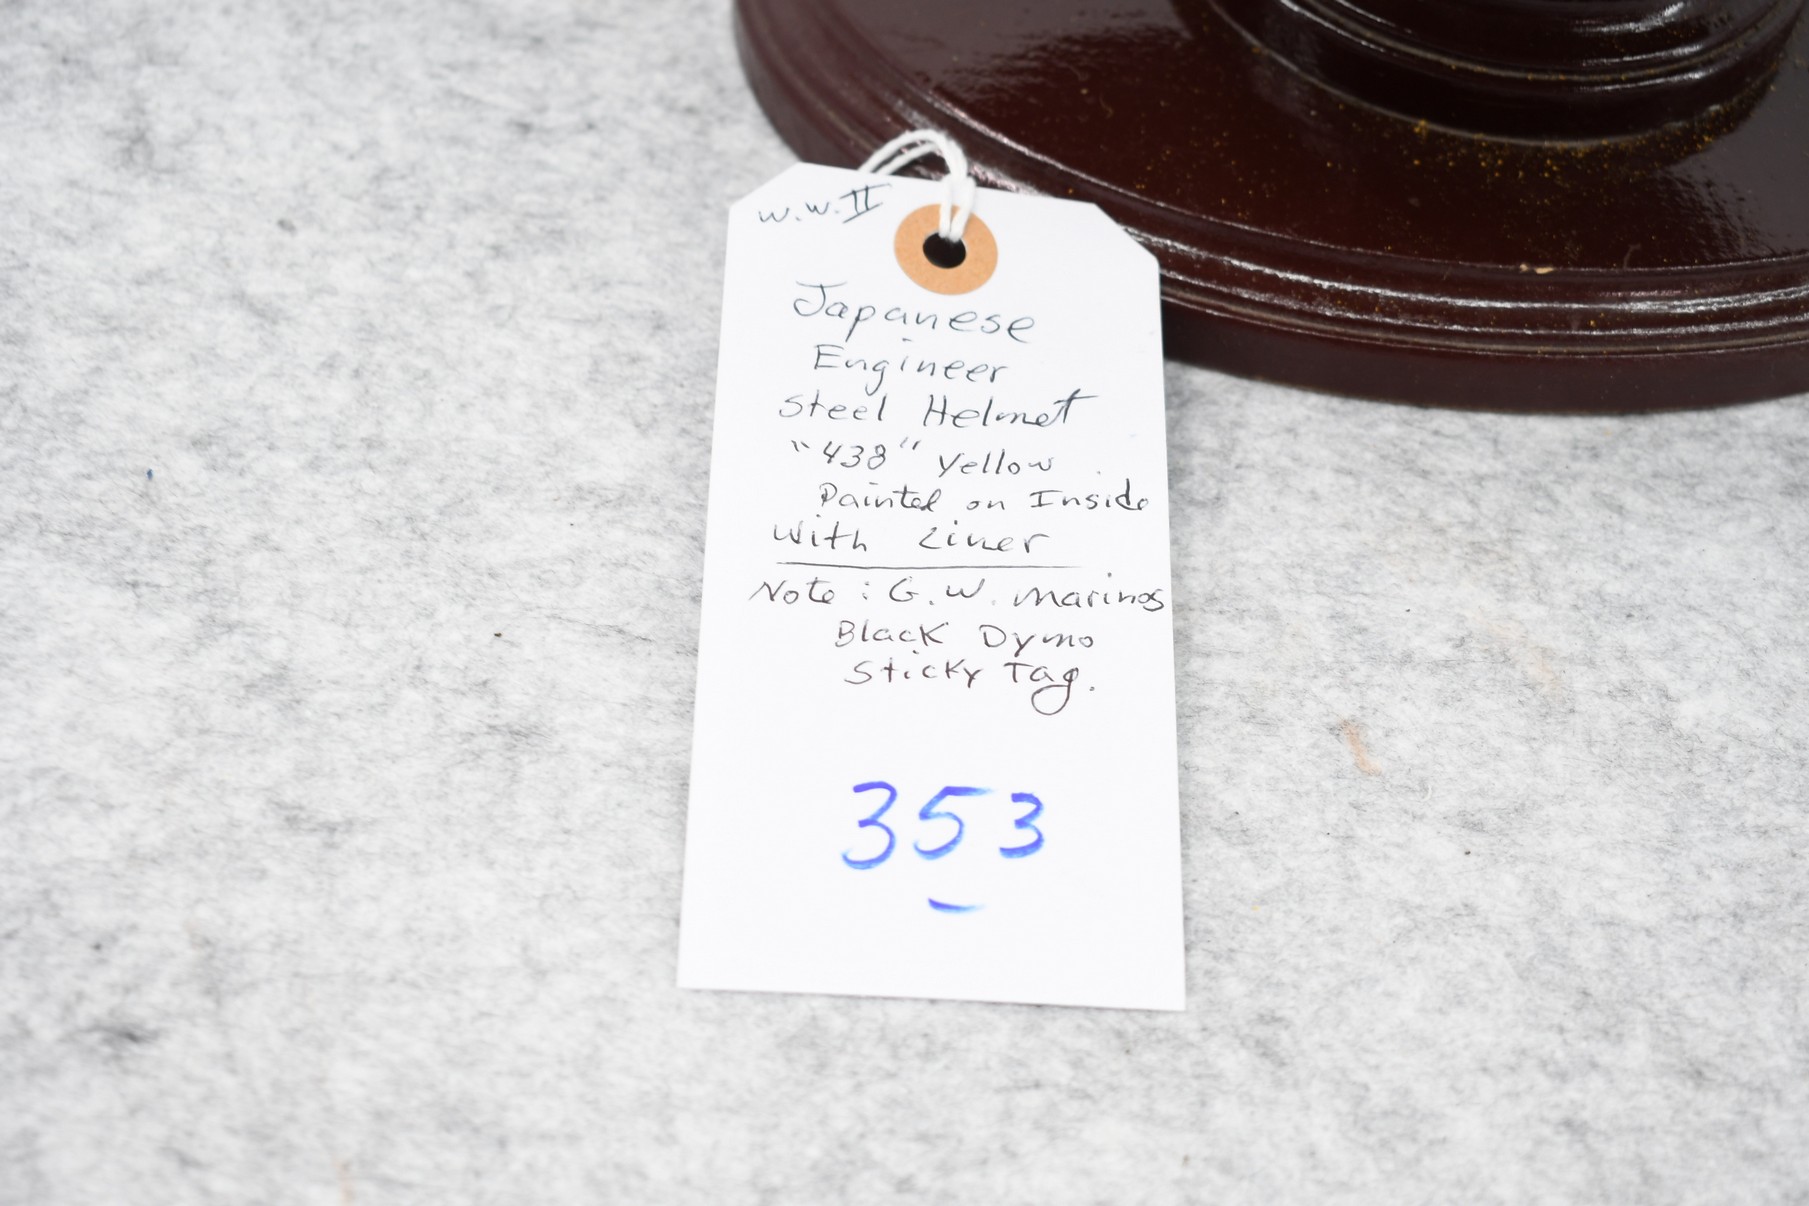 W.W.II
Japanese
Engineer
Steel Helmet
"438" Yellow
Painted on Inside
With Liner
Note: G.W. Marinos
Black Dymo
Sticky Tag.
353